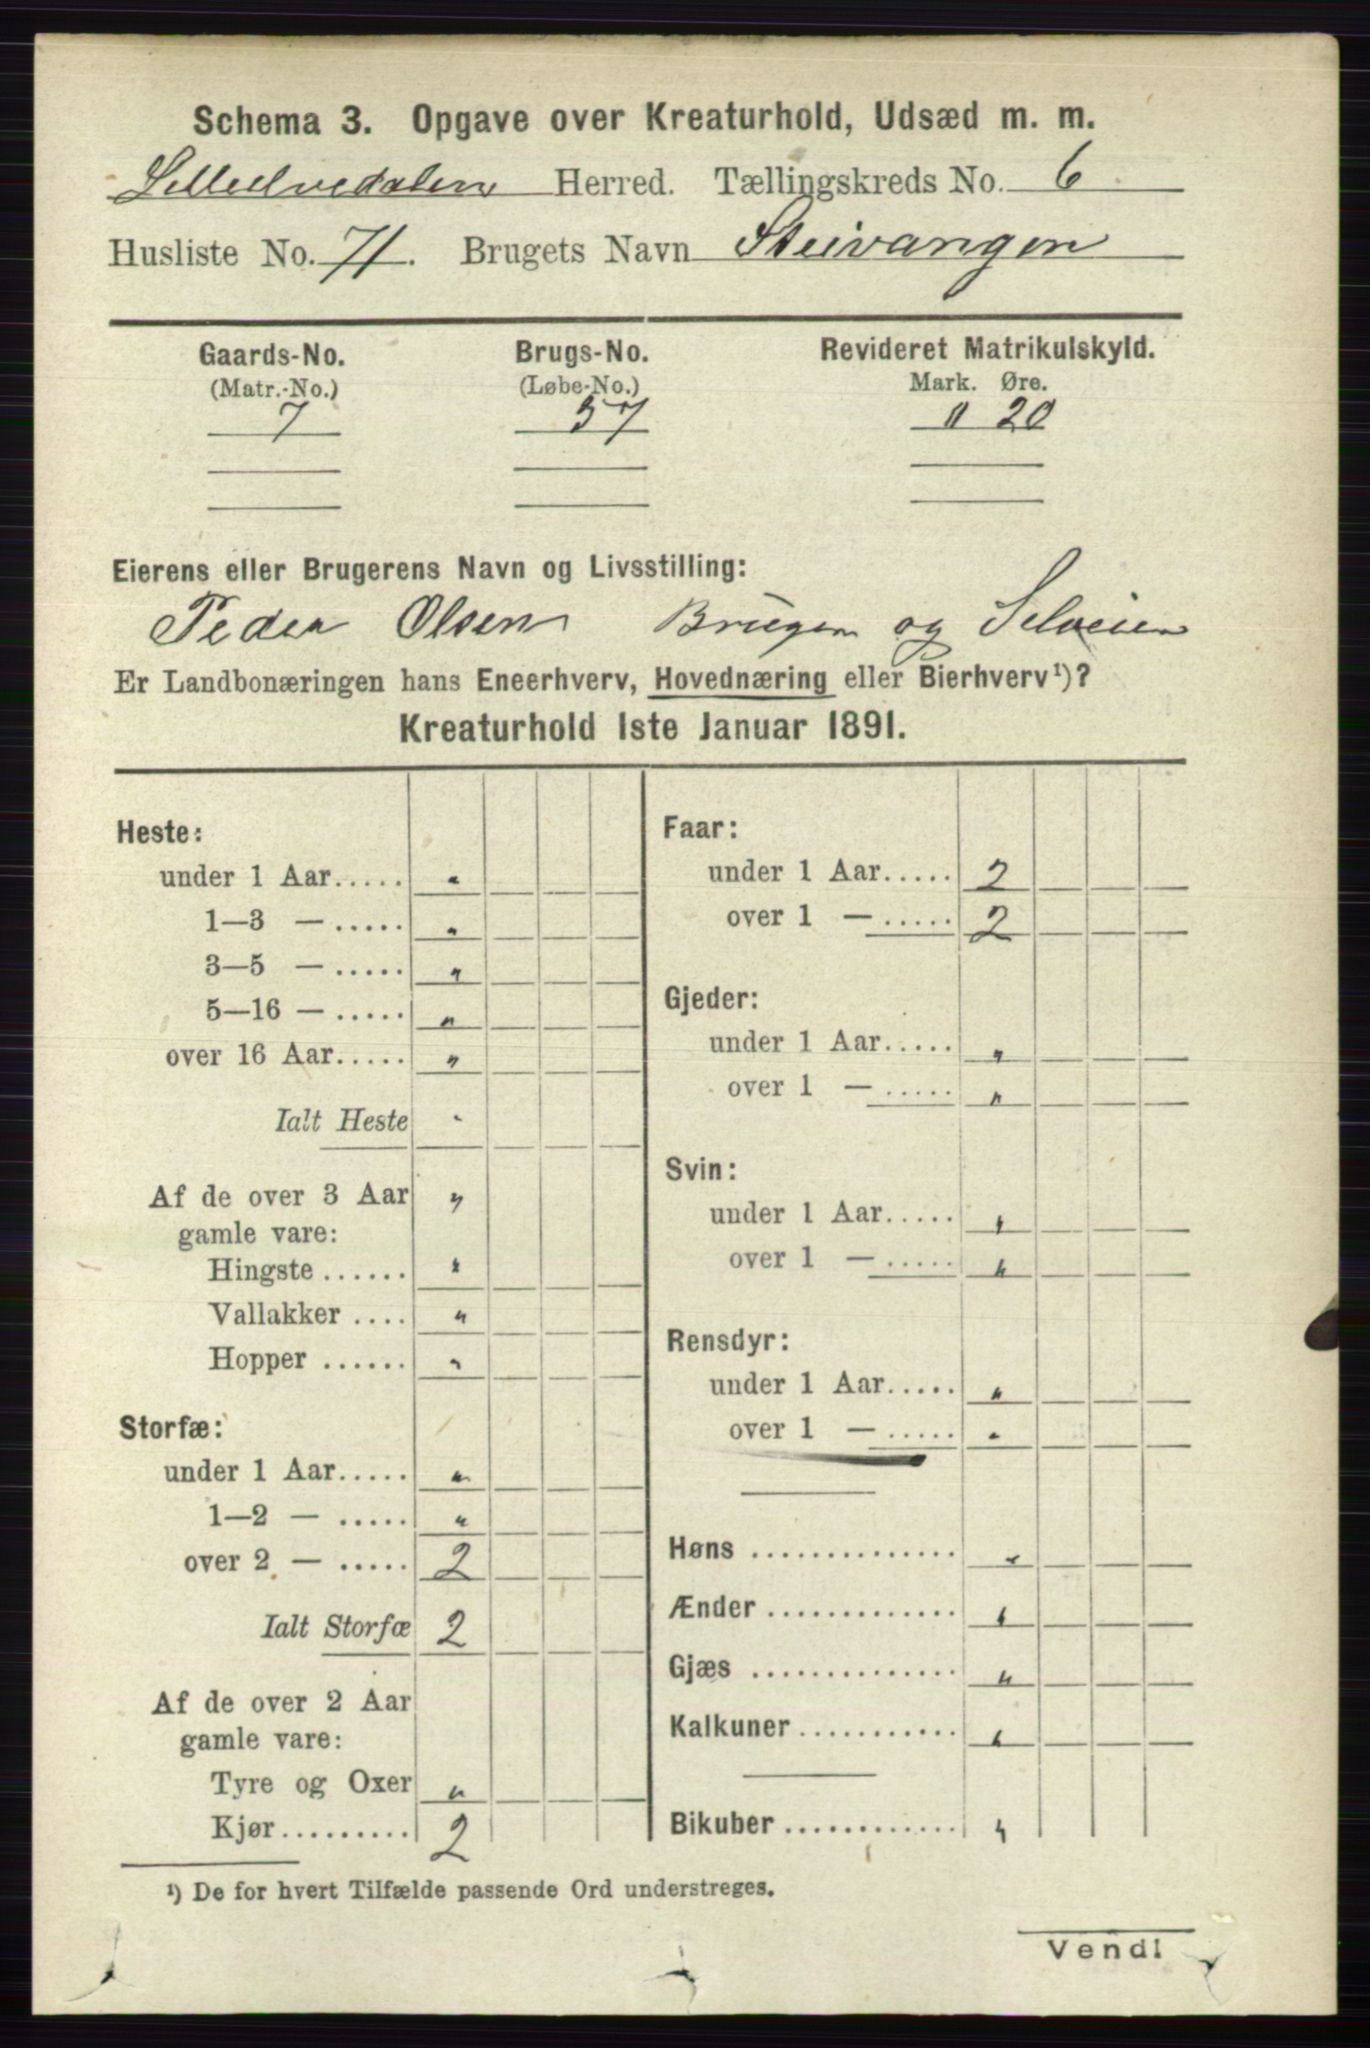 Schema 3. Opgave over Kreaturhold, Udsæd m. m.
Lilleelvedalen Herred. Tællingskreds No. 6
Husliste No. 71. Brugets Navn Steivangen
Gaards-No. Brugs-No. Revideret Matrikulskyld.
(Matr.-No.) (Løbe-No.) Mark. Øre.
7 37 " 20
Eierens eller Brugerens Navn og Livsstilling:
Peder Olsen Bruger og Selveier
Er Landbonæringen hans Eneerhverv, Hovednæring eller Bierhverv¹)?
Kreaturhold 1ste Januar 1891.
Heste:
under 1 Aar..... "
1—3 — ..... "
3—5 — ..... "
5—16 — ..... "
over 16 Aar..... "
Ialt Heste "
Af de over 3 Aar "
gamle vare:
Hingste ...... "
Vallakker .... "
Hopper ...... "
Storfæ:
under 1 Aar..... "
1—2 — ..... "
over 2 — ..... 2
Ialt Storfæ 2
Af de over 2 Aar
gamle vare:
Tyre og Oxer "
Kjør.......... 2
Faar:
under 1 Aar..... 2
over 1 — ..... 2
Gjeder:
under 1 Aar..... "
over 1 — ..... "
Svin:
under 1 Aar..... "
over 1 — ..... "
Rensdyr:
under 1 Aar..... "
over 1 — ..... "
Høns .............. "
Ænder .............. "
Gjæs .............. "
Kalkuner............ "
Bikuber ............. "
¹) De for hvert Tilfælde passende Ord understreges.
Vend!